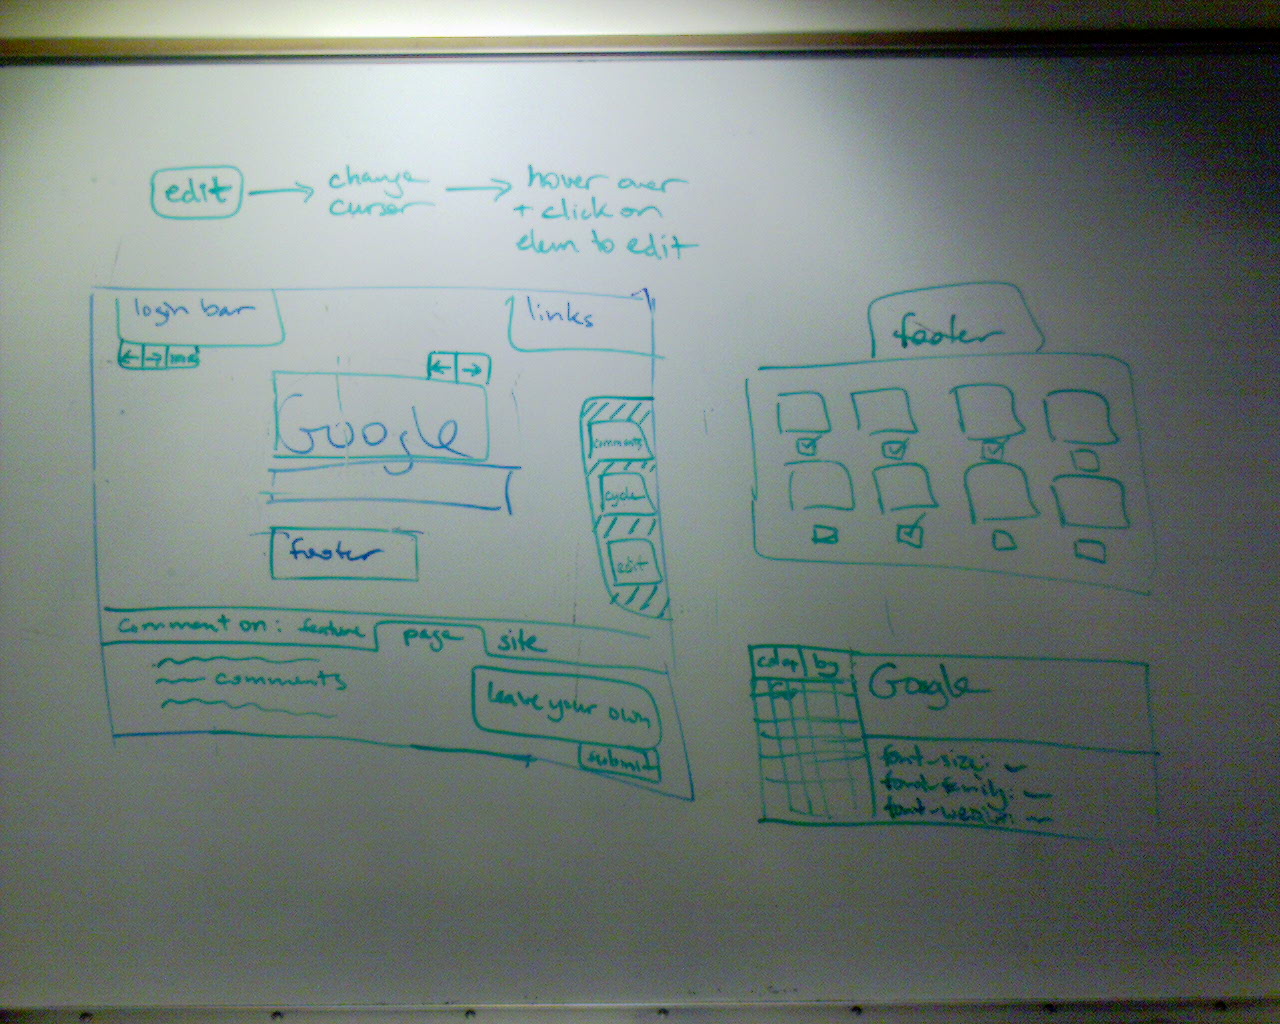 edit → change → hover over
cursor + click on
elem to edit
login bar
links
← →
← →
Google
footer
comments
cycle
edit
comment on: feature page site
comments
leave your own
submit
footer
color bg
Google
font-size:
font-family:
font-weight: